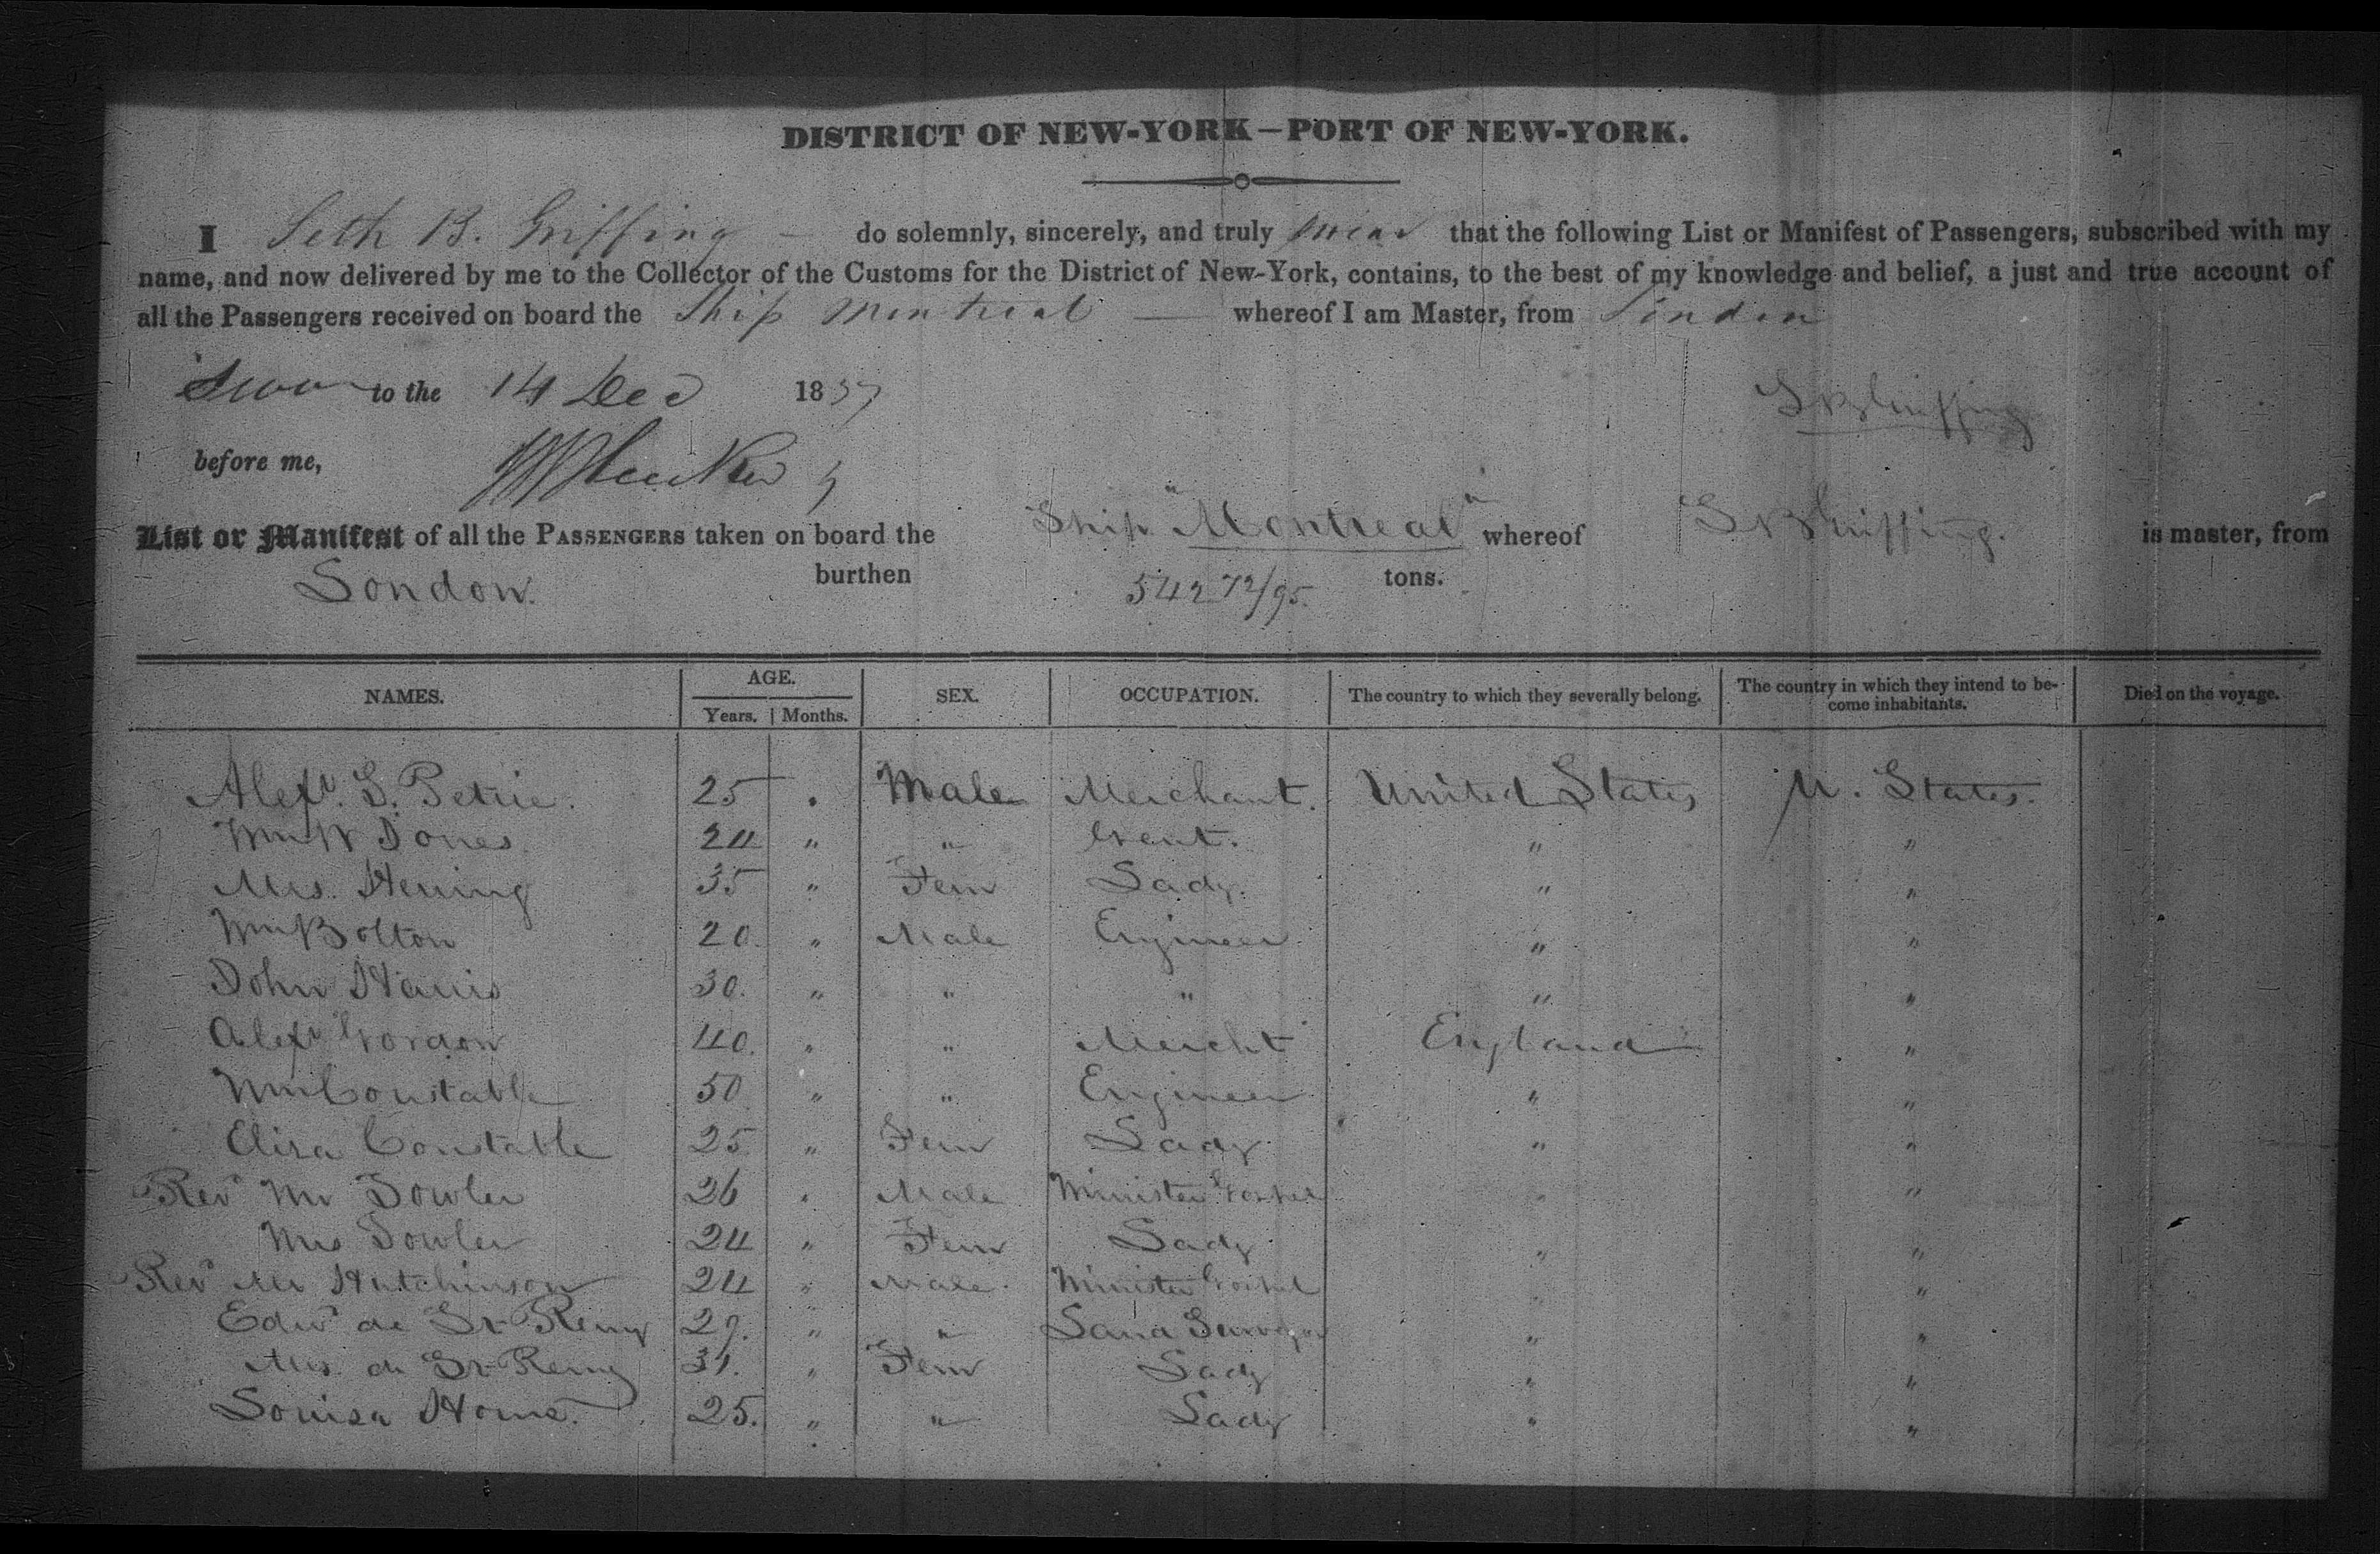 DISTRICT OF NEW-YORK—PORT OF NEW-YORK.
I Seth B. Griffing — do solemnly, sincerely, and truly swear that the following List or Manifest of Passengers, subscribed with my
name, and now delivered by me to the Collector of the Customs for the District of New-York, contains, to the best of my knowledge and belief, a just and true account of
all the Passengers received on board the Ship Montreal — whereof I am Master, from London
Sworn to the 14 Dec 1837 S B Griffing
before me,
List or Manifest of all the PASSENGERS taken on board the Ship "Montreal" whereof S B Griffing. is master, from
London. burthen 542 72/95. tons.
NAMES. AGE. Years. Months. SEX. OCCUPATION. The country to which they severally belong. The country in which they intend to become inhabitants. Died on the voyage.
Alexr. S. Petrie. 25 " Male Merchant. United States U. States.
Wm W Jones. 24 " " Gent. " "
Mrs. Hering 35 " Fem Lady. " "
Wm Bolton 20. " Male Engineer " "
John Harris 30. " " " " "
Alexr Gordon 40. " " Mercht England "
Wm Constable 50 " " Engineer " "
Eliza Constable 25 " Fem Lady " "
Revd Mr Fowler 26 " Male Minister Gospel " "
Mrs Fowler 24 " Fem Lady " "
Revd Mr Hutchinson 24 " Male. Minister Gospel " "
Edwd de St Remy 27. " " Land Surveyor " "
Mrs. de St Remy 31. " Fem Lady " "
Louisa Horne. 25. " " Lady " "